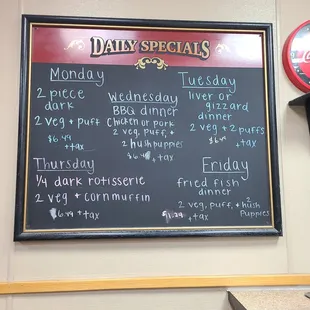 DAILY SPECIALS
Monday
2 piece
dark
2 veg + puff
$6.49
+tax
Wednesday
BBQ dinner
Chicken or pork
2 veg, puff, +
2 hushpuppies
+ tax
Tuesday
liver or
gizzard
dinner
2 veg + 2 puffs
+ tax
Thursday
1/4 dark rotisserie
2 veg + cornmuffin
$6.49 + tax
Friday
fried fish
dinner
2 veg, puff, + 2 hush
Puppies
+ tax